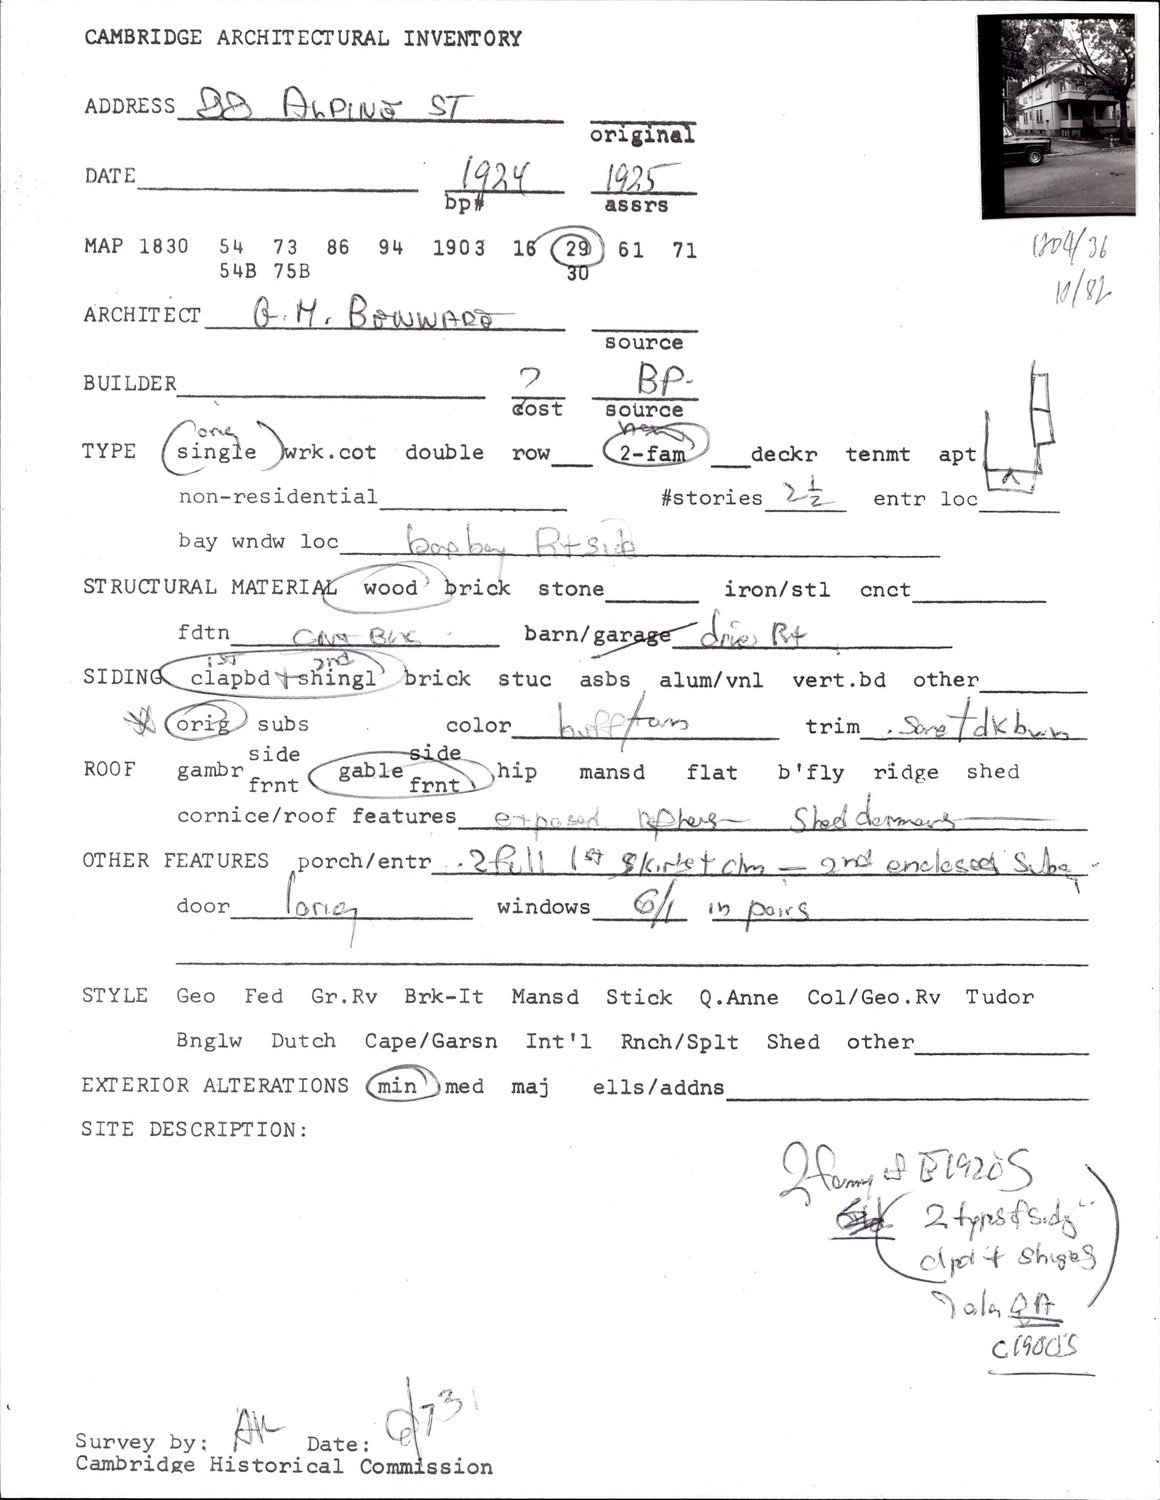 CAMBRIDGE ARCHITECTURAL INVENTORY
ADDRESS 88 ALPINE ST
original
DATE 1924 1925
bp# assrs
MAP 1830 54 73 86 94 1903 16 29 61 71
54B 75B 30
1804/36
10/82
ARCHITECT G. M.
source
BUILDER ? BP-
cost source
one
TYPE single wrk.cot double row 2-fam deckr tenmt apt
non-residential #stories 2 1/2 entr loc
bay wndw loc box bay Rt side
STRUCTURAL MATERIAL wood brick stone iron/stl cnct
fdtn Cnt Blk barn/garage Rt
1st 2nd
SIDING clapbd + shingl brick stuc asbs alum/vnl vert.bd other
orig subs color buff/tan trim same + dk brwn
side side
ROOF gambr gable hip mansd flat b'fly ridge shed
frnt frnt
cornice/roof features exposed rafters Shed dormers
OTHER FEATURES porch/entr 2 full 1st + clm - 2nd enclosed subs
door 1 orig windows 6/1 in pairs
STYLE Geo Fed Gr.Rv Brk-It Mansd Stick Q.Anne Col/Geo.Rv Tudor
Bnglw Dutch Cape/Garsn Int'l Rnch/Splt Shed other
EXTERIOR ALTERATIONS min med maj ells/addns
SITE DESCRIPTION:
2 famy of E 1920S
2 types of sidg
clpd + shigs
ala QA
C1900S
Survey by: AK Date: 6/73
Cambridge Historical Commission